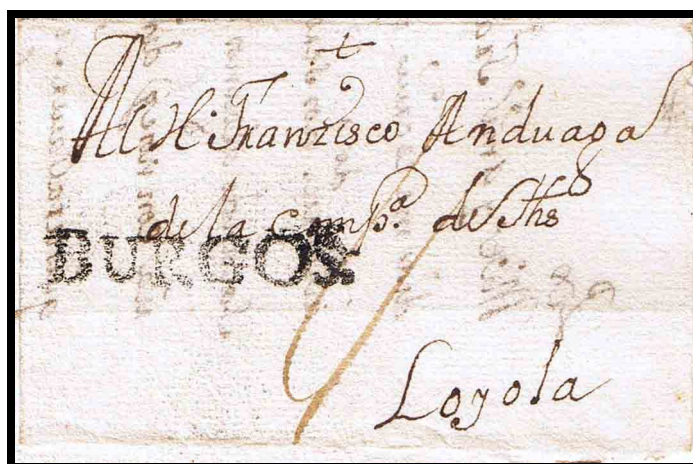 Al H. Franzisco Anduaga
de la Compª. de Jhs
BURGOS.
Loyola